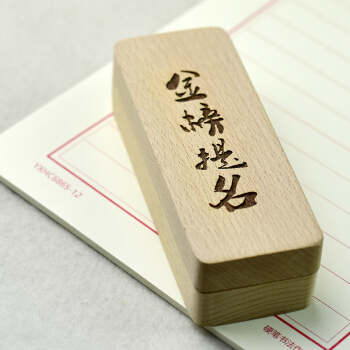 金榜提名
YXHC6865-12
硬笔书法作